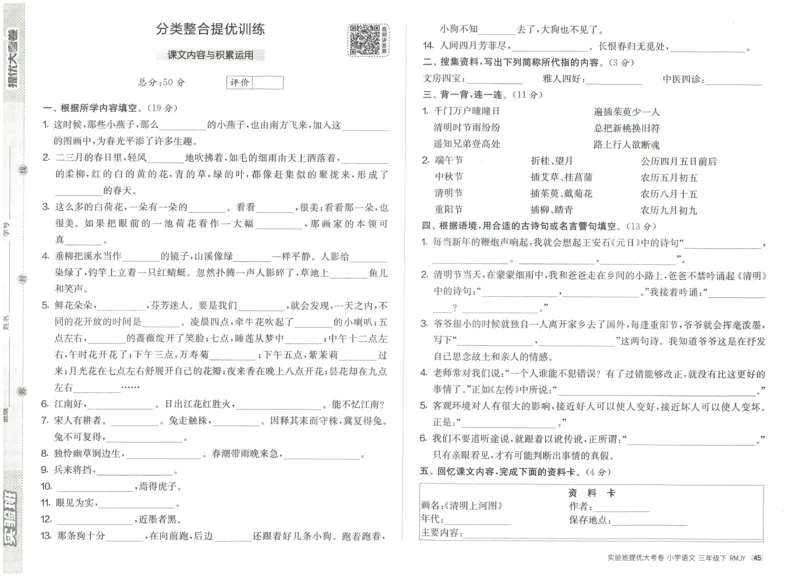 提优大考卷
学号
姓名
班级
实验班
分类整合提优训练
课文内容与积累运用
总分:50 分 评价
一、根据所学内容填空。(19 分)
1. 这时候,那些小燕子,那么________的小燕子,也由南方飞来,加入这________
的图画中,为春光平添了许多生趣。
2. 二三月的春日里,轻风________地吹拂着,如毛的细雨由天上洒落着,________
的柔柳,红的白的黄的花,青的草,绿的叶,都像赶集似的聚拢来,形成了
________的春天。
3. 这么多的白荷花,一朵有一朵的________。看看________,很美;看看那一朵,也
很美。如果把眼前的一池荷花看作一大幅________,那画家的本领可
真________。
4. 垂柳把溪水当作________的镜子,山溪像绿________一样平静。人影给________
染绿了,钓竿上立着一只红蜻蜓。忽然扑腾一声人影碎了,草地上________鱼儿
和笑声。
5. 鲜花朵朵,________,芬芳迷人。要是我们________,就会发现,一天之内,不
同的花开放的时间是________。凌晨四点,牵牛花吹起了________的小喇叭;五
点左右,________的蔷薇绽开了笑脸;七点,睡莲从梦中________;中午十二点左
右,午时花开花了;下午三点,万寿菊________;下午五点,紫茉莉________过
来;月光花在七点左右舒展开自己的花瓣;夜来香在晚上八点开花;昙花却在九点
左右________……
6. 江南好,________。日出江花红胜火,________。能不忆江南?
7. 宋人有耕者。________。兔走触株,________。因释其耒而守株,冀复得兔。
兔不可复得,________。
8. 独怜幽草涧边生,________。春潮带雨晚来急,________。
9. 兵来将挡,________。
10. ________,焉得虎子。
11. 眼见为实,________。
12. ________,近墨者黑。
13. 那条狗十分________,在向前跑,后边________还跟着好几条小狗。跑着跑着,
小狗不知________去了,大狗也不见了。
14. 人间四月芳菲尽,________。长恨春归无觅处,________。
二、搜集资料,写出下列简称所代指的内容。(3 分)
文房四宝:________ 雅人四好:________ 中医四诊:________
三、背一背,连一连。(11 分)
1. 千门万户曈曈日 遍插茱萸少一人
清明时节雨纷纷 总把新桃换旧符
遥知兄弟登高处 路上行人欲断魂
2. 端午节 折桂、望月 公历四月五日前后
中秋节 插艾草、挂菖蒲 农历五月初五
清明节 插茱萸、戴菊花 农历八月十五
重阳节 插柳、踏青 农历九月初九
四、根据语境,用合适的古诗句或名言警句填空。(13 分)
1. 每当新年的鞭炮声响起,我就会想起王安石《元日》中的诗句“________,
________。________,________。”
2. 清明节当天,在蒙蒙细雨中,我和爸爸走在乡间的小路上,爸爸不禁吟诵起《清明》
中的诗句:“________,________。”我接着吟诵:“________
____?________。”
3. 爷爷很小的时候就独自一人离开家乡去了国外,每逢重阳节,爷爷就会挥毫泼墨,
写下“________,________”这两句诗。我知道爷爷这是在抒发
自己思念故土和亲人的感情。
4. 老师常对我们说:“一个人谁能不犯错误?有了过错能够改正,就没有比这更好的
事情了。”正如《左传》中所说:“________。”
5. 客观环境对人有很大的影响,接近好人可以使人变好,接近坏人可以使人变坏。
正是:“________。”
6. 我们不要道听途说,就跟着以讹传讹,正所谓:“________。”
只有亲眼看见,才有可能判断出事情的真假。
五、回忆课文内容,完成下面的资料卡。(4 分)
资 料 卡
画名:《清明上河图》 作者:________
年代:________ 保存地点:________
主要内容:________
实验班提优大考卷 小学语文 三年级下 RMJY 45